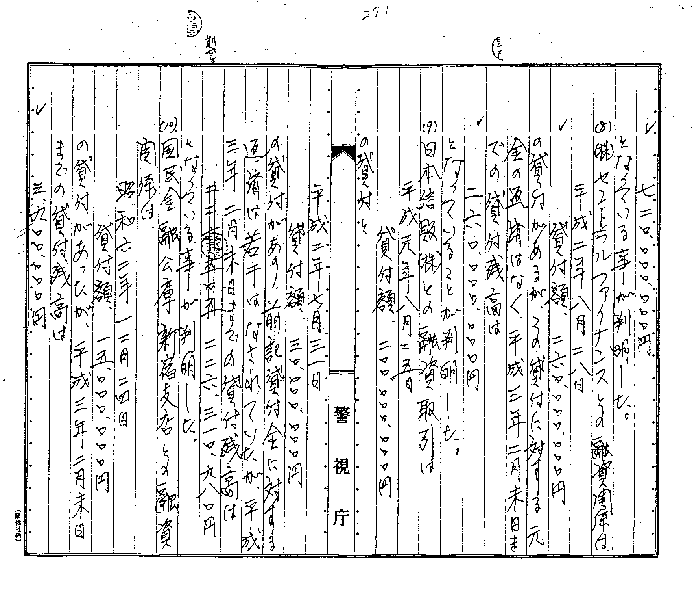 271
七二〇、〇〇〇、〇〇〇円
となっている事が判明した。
(8) ㈱セントラルファイナンスとの融資関係は
平成二年八月二八日
貸付額 二六〇、〇〇〇、〇〇〇円
の貸付があるが、その貸付に対する元
金の返済はなく、平成三年二月末日ま
での貸付残高は
二六〇、〇〇〇、〇〇〇円
となっていることが判明した。
(9) 日本信販㈱との融資取引は
平成元年八月二五日
貸付額 二〇〇、〇〇〇、〇〇〇円
の貸付と
警視庁
平成二年七月三一日
貸付額 三〇、〇〇〇、〇〇〇円
の貸付があり、前記貸付金に対する
返済は若干はなされているが、平成
三年二月末日までの貸付残高は
二二六、三一〇、九八〇円
となっている事が判明した。
(10) 国民金融公庫新宿支店との融資
関係は
昭和六二年一二月二四日
貸付額 一五、〇〇〇、〇〇〇円
の貸付があったが、平成三年二月末日
までの貸付残高は
三、九〇〇、〇〇〇円